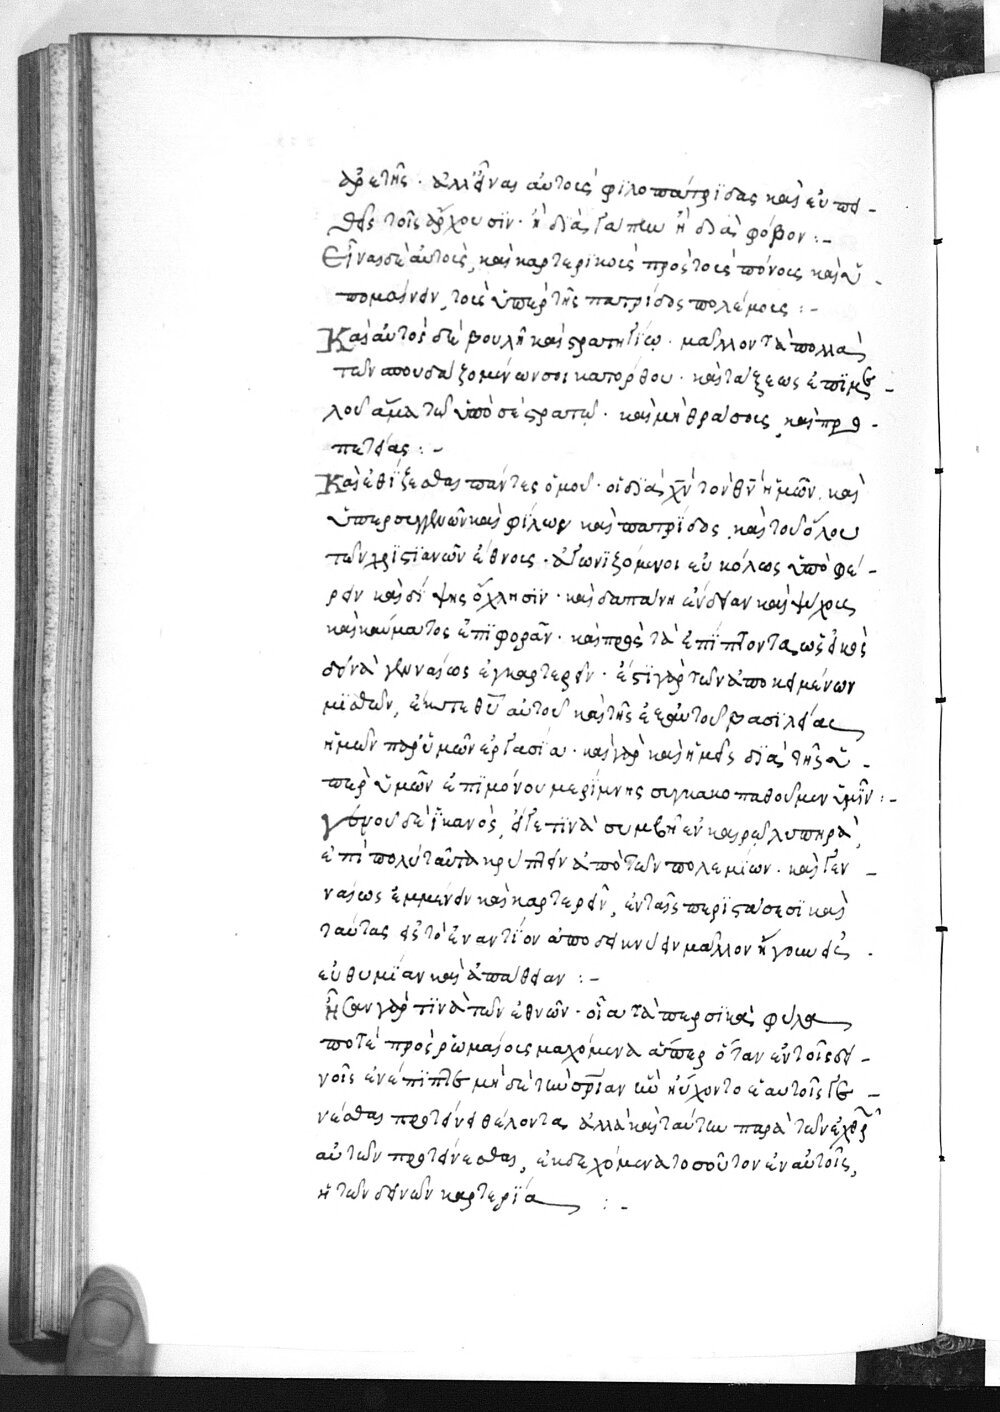 ἀρετῆς· ἀλλ' εἶναι αὐτοὺς φιλοπάτριδας καὶ εὐπει-
θεῖς τοῖς ἄρχουσιν· ἢ διὰ γαπην ἢ διὰ φόβον :-
Εἶναι δὲ αὐτοὺς, καὶ καρτερικοὺς πρὸς τοὺς πόνους καὶ ὑ-
πομένειν, τοὺς ὑπὲρ τῆς πατρίδος πολέμους :-
Καὶ αὐτὸς δὲ βουλῇ καὶ στρατηγίᾳ· μᾶλλον τὰ πολλὰ
τῶν σπουδαζομένων σοι κατόρθου· καὶ τάξεως ἐπιμε-
λοῦ ἅμα τῷ ὑπὸ σὲ στρατῷ· καὶ μὴ θράσους, καὶ προ-
πετείας :-
Καὶ ἐθίζεσθαι πάντες ὁμοῦ· οἱ διὰ χν τὸν θν ἡμῶν, καὶ
ὑπὲρ συγγενῶν καὶ φίλων καὶ πατρίδος, καὶ τοῦ ὅλου
τῶν χριστιανῶν ἔθνους· ἀγωνιζόμενοι εὐκόλως ὑποφέ-
ρειν καὶ δίψης ὄχλησιν· καὶ δαπάνη ἔνδειαν καὶ ψύχους
καὶ καύματος ἐπιφοράν· καὶ πρὸς τὰ ἐπίπτοντα, ὡς εἰκὸς
δεινὰ γενναίως ἐγκαρτερεῖν· ἔστι γὰρ τῶν ἀποκειμένων
μισθῶν, ἔκ τε θυ αὐτοῦ καὶ τῆς ἐξ αὐτοῦ βασιλείας
ἡμῶν παρ' ὑμῶν ἐργασία· καὶ γὰρ καὶ ἡμεῖς διὰ τῆς ὑ-
πὲρ ὑμῶν ἐπιμόνου μερίμνης συγκακοπαθοῦμεν ὑμῖν :-
γένου δὲ ἱκανὸς, εἴγε τινὰ συμβῇ ἐν καιρῷ λυπηρὰ,
ἐπὶ πολὺ ταῦτα κρύπτειν ἀπὸ τῶν πολεμίων· καὶ γεν-
ναίως ἐμμένειν καὶ καρτερεῖν, ἐν ταῖς περιστάσεσι καὶ
ταύτας εἰς τὸ ἐναντίον ἀποδεικνύειν μᾶλλον ἤγουν εἰς
εὐθυμίαν καὶ ἀπάθειαν :-
ἦσαν γάρ τινὰ τῶν ἐθνῶν· οἷα τὰ περσικὰ φύλα
ποτὲ πρὸς ῥωμαίους μαχόμενα ἅπερ ὅταν ἐν τοῖς δει-
νοῖς ἐνέπιπτε μηδὲ τὴν σριαν ἣν ηὔχοντο ἑαυτοῖς γε-
νέσθαι προτείνειν θέλοντα, ἀλλὰ καὶ ταύτην παρὰ τῶν ἐχθρῶν
αὐτῶν προτείνεσθαι, ἐκδεχόμενα τοσοῦτον ἐν αὐτοῖς,
ἡ τῶν δεινῶν καρτερία :-